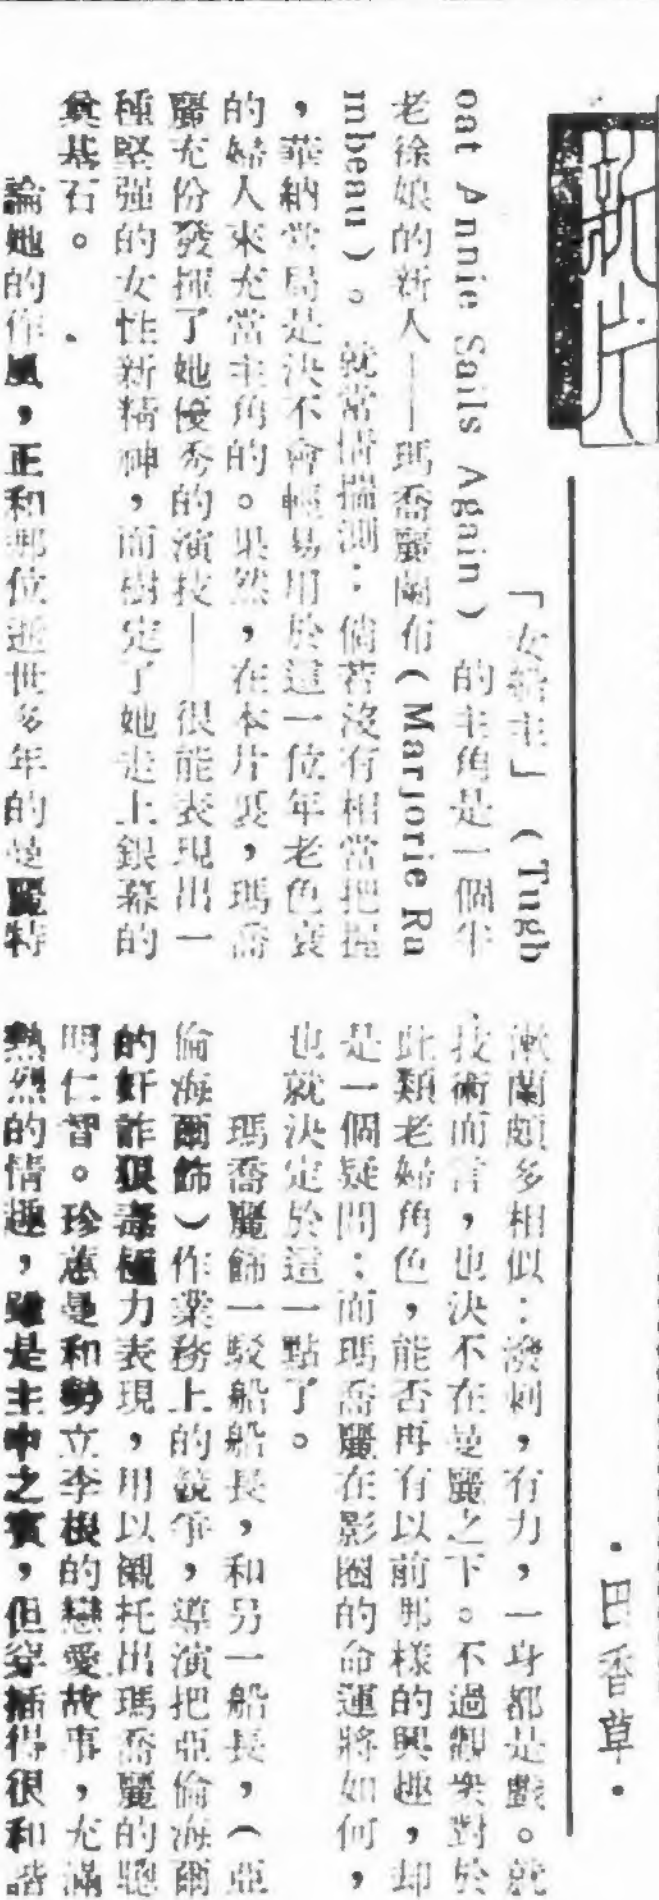 新片
·巴香草·
「女船主」(Tugb
oat Annie Sails Again)的主角是一個半
老徐娘的新人——瑪喬麗蘭布(Marjorie Ra
mbeau)。就常情揣測:倘若沒有相當把握
,華納當局是決不會輕易用於這一位年老色衰
的婦人來充當主角的。果然,在本片裏,瑪喬
麗充份發揮了她優秀的演技——很能表現出一
種堅強的女性新精神,而樹定了她走上銀幕的
奠基石。
論她的作風,正和那位逝世多年的曼麗特
漱蘭頗多相似:潑剌,有力,一身都是戲。就
技術而言,也決不在曼麗之下。不過觀衆對於
此類老婦角色,能否再有以前那樣的興趣,却
是一個疑問;而瑪喬麗在影圈的命運將如何,
也就決定於這一點了。
瑪喬麗飾一駁船船長,和另一船長,(亞
倫海爾飾)作業務上的競爭,導演把亞倫海爾
的奸詐狠毒極力表現,用以襯托出瑪喬麗的聰
明仁智。珍惠曼和勢立李根的戀愛故事,充滿
熱烈的情趣,雖是主中之賓,但穿插得很和諧